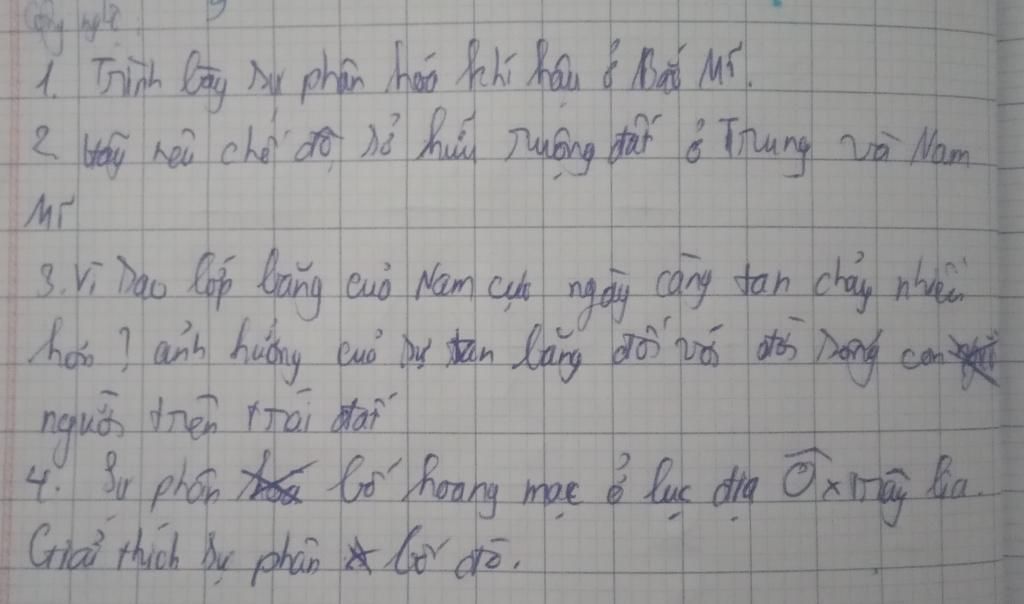 Công nghệ
1. Trình bày sự phân hoá khí hậu ở Bắc Mĩ.
2 Hãy nêu chế độ sở hữu ruộng đất ở Trung và Nam
Mĩ
3. Vì sao lớp băng của Nam cực ngày càng tan chảy nhiều
hơn? ảnh hưởng của sự tan băng đối với đời sống con
người trên trái đất
4. Sự phân bố hoang mạc ở lục địa Ôxtrâylia.
Giải thích sự phân bố đó.